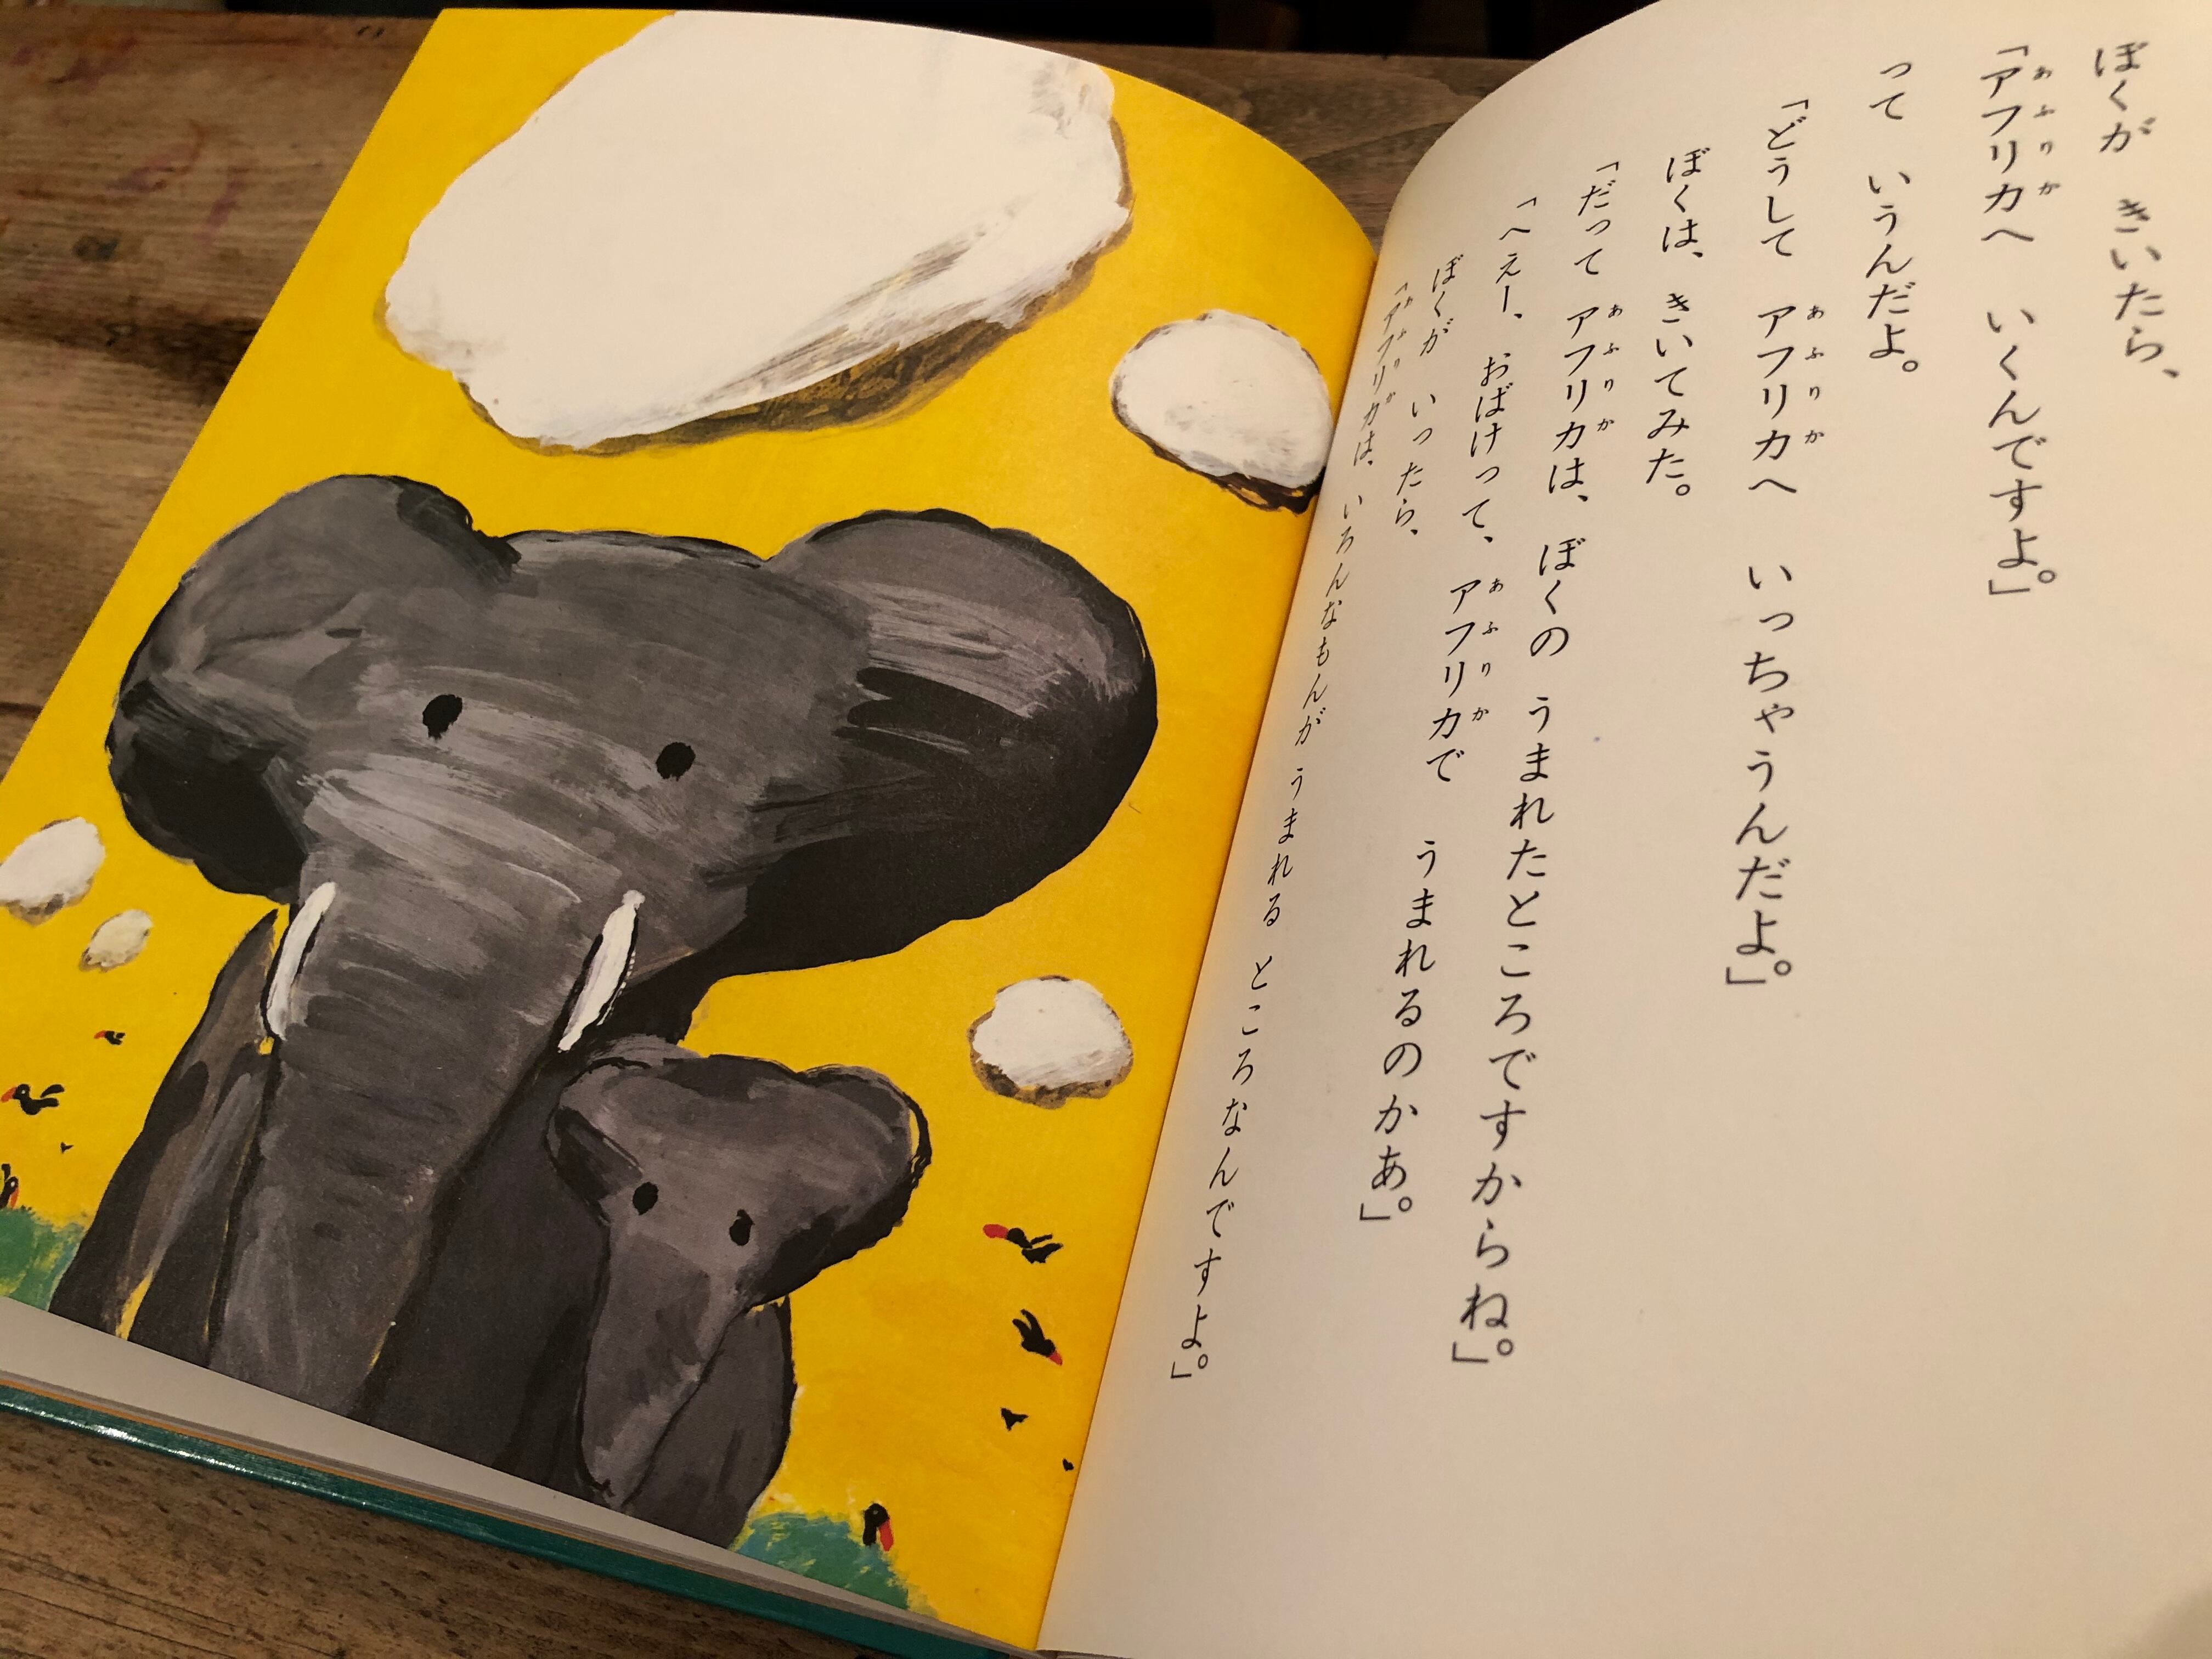 ぼくが きいたら、
「アフリカへ いくんですよ。」
って いうんだよ。
「どうして アフリカへ いっちゃうんだよ。」
ぼくは、きいてみた。
「だって アフリカは、ぼくの うまれたところですからね。」
「へえー、おばけって、アフリカで うまれるのかあ。」
ぼくが いったら、
「アフリカは、いろんなもんが うまれる ところなんですよ。」